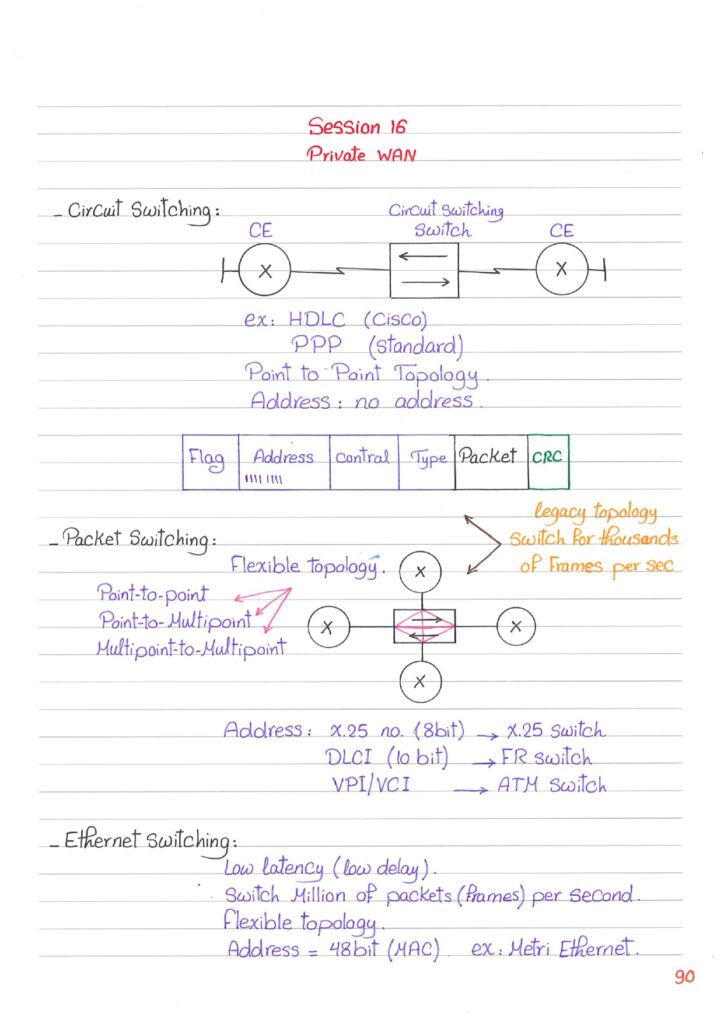 Session 16
Private WAN
- Circuit Switching:
Circuit Switching
CE Switch CE
X X
ex: HDLC (Cisco)
PPP (standard)
Point to Point Topology.
Address: no address.
Flag Address Control Type Packet CRC
1111 1111
legacy topology
Switch for thousands
of Frames per sec
- Packet Switching:
Flexible topology.
X
Point-to-point
Point-to-Multipoint
Multipoint-to-Multipoint
X X
X
Address: X.25 no. (8bit) → X.25 Switch
DLCI (10 bit) → FR switch
VPI/VCI → ATM Switch
- Ethernet Switching:
Low latency (low delay).
Switch Million of packets (frames) per second.
Flexible topology.
Address = 48bit (MAC) ex: Metri Ethernet.
90